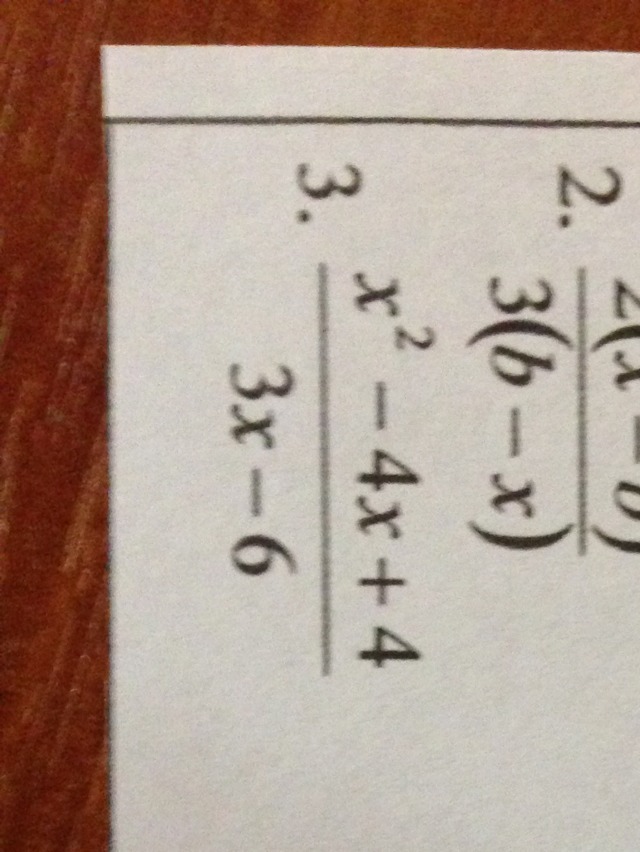 2. 2(x – b)
3(b – x)
3. x² – 4x + 4
3x – 6